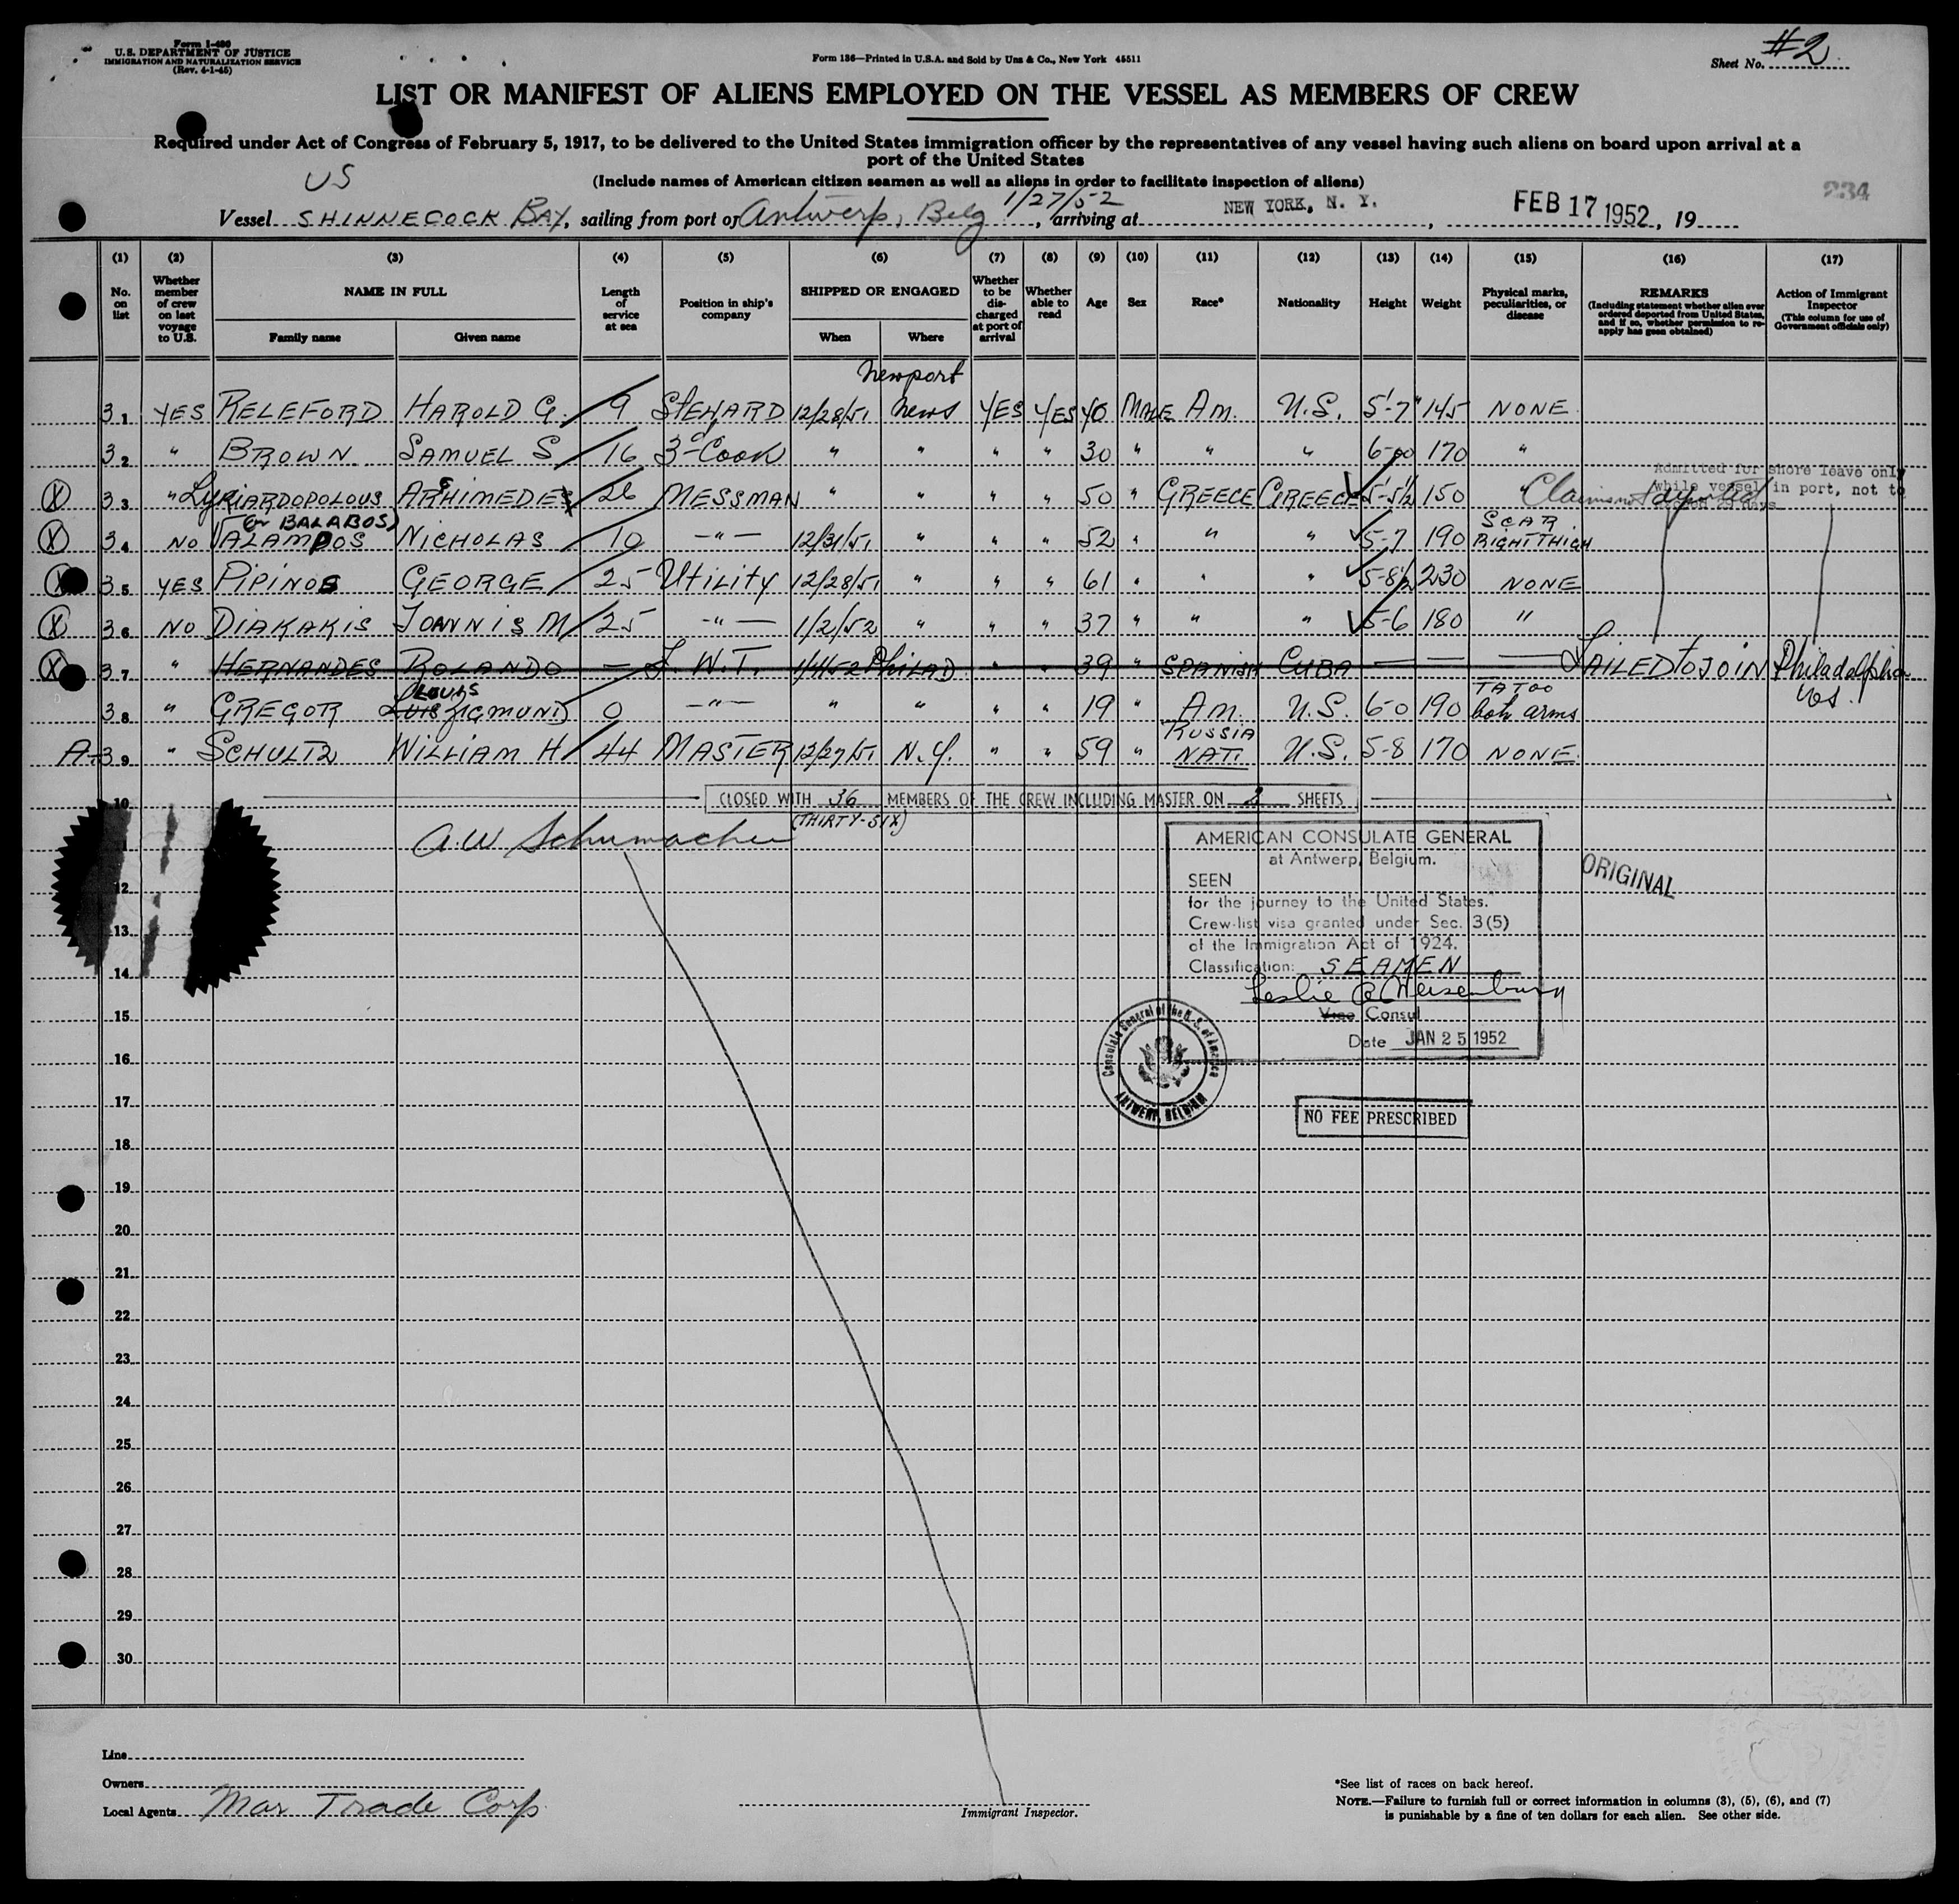 Form I-480
U.S. DEPARTMENT OF JUSTICE
IMMIGRATION AND NATURALIZATION SERVICE
(Rev. 4-1-45)
Form 136—Printed in U.S.A. and Sold by Unz & Co., New York 45511
Sheet No. #2
LIST OR MANIFEST OF ALIENS EMPLOYED ON THE VESSEL AS MEMBERS OF CREW
Required under Act of Congress of February 5, 1917, to be delivered to the United States immigration officer by the representatives of any vessel having such aliens on board upon arrival at a
port of the United States
(Include names of American citizen seamen as well as aliens in order to facilitate inspection of aliens)
234
US
Vessel SHINNECOCK BAY, sailing from port of Antwerp, Belg 1/27/52, arriving at NEW YORK, N. Y., FEB 17 1952, 19
(1) (2) (3) (4) (5) (6) (7) (8) (9) (10) (11) (12) (13) (14) (15) (16) (17)
No. on list
Whether member of crew on last voyage to U.S.
NAME IN FULL
Family name
Given name
Length of service at sea
Position in ship's company
SHIPPED OR ENGAGED
When
Where
Whether to be discharged at port of arrival
Whether able to read
Age
Sex
Race*
Nationality
Height
Weight
Physical marks, peculiarities, or disease
REMARKS
(Including statement whether alien ever ordered deported from United States, and if so, whether permission to reapply has been obtained)
Action of Immigrant Inspector
(This column for use of Government officials only)
Newport
31 YES RELEFORD HAROLD G. 9 STEWARD 12/28/51 News YES YES 40 MALE Am. U.S. 5'-7" 145 NONE
32 " BROWN SAMUEL S 16 3d COOK " " " " 30 " " " 6-00 170 "
Admitted for shore leave only
while vessel in port, not to
exceed 29 days
X 33 " LyKIARDOPOLOUS ARHIMEDES 26 MESSMAN " " " " 50 " GREECE GREECE 5'-5 1/2 150 " Claims not deported
(or BALABOS)
X 34 NO VALAMPOS NICHOLAS 10 -"- 12/31/51 " " " 52 " " " 5-7 190 SCAR RIGHT THIGH
X 35 YES PIPINOS GEORGE 25 UTILITY 12/28/51 " " " 61 " " " 5-8 1/2 230 NONE
X 36 NO DIAKAKIS IOANNIS M 25 -"- 1/2/52 " " " 37 " " " 5-6 180 "
X 37 " HERNANDES ROLANDO — W.T. 1/4/52 PHILAD. " " 39 " SPANISH CUBA — — — FAILED TO JOIN Philadelphia
LOUIS
38 " GREGOR LUIS ZIGMUND 0 -"- " " " " 19 " Am. U.S. 6-0 190 TATOO both arms
RUSSIA
A- 39 " SCHULTZ WILLIAM H 44 MASTER 12/27/51 N.Y. " " 59 " NAT. U.S. 5-8 170 NONE
CLOSED WITH 36 MEMBERS OF THE CREW INCLUDING MASTER ON 2 SHEETS
(THIRTY-SIX)
A.W Schumacher
AMERICAN CONSULATE GENERAL
at Antwerp, Belgium.
SEEN
for the journey to the United States.
Crew-list visa granted under Sec. 3(5)
of the Immigration Act of 1924.
Classification: SEAMEN
Vice Consul
Date JAN 25 1952
ORIGINAL
Consulate General of the U.S. of America
ANTWERP, BELGIUM
NO FEE PRESCRIBED
10
11
12
13
14
15
16
17
18
19
20
21
22
23
24
25
26
27
28
29
30
Line
Owners
Local Agents Mar Trade Corp.
Immigrant Inspector.
*See list of races on back hereof.
NOTE.—Failure to furnish full or correct information in columns (3), (5), (6), and (7)
is punishable by a fine of ten dollars for each alien. See other side.